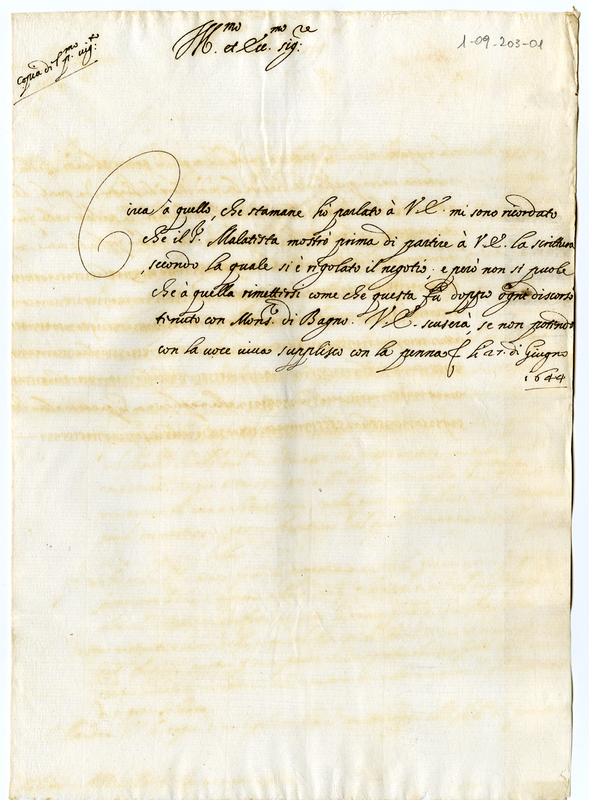 Ill.mo et Ecc.mo sig.re
1-09-203-01
copia di
Circa à quello, che stamane ho parlato à V.E. mi sono ricordato
che il P. Malatista mostrò prima di partire à V.E. la scrittura
secondo la quale si è rigolato il negotio, e però non si puole
che à quella rimettersi come che questa fù doppo ogni discorso
tenuto con Mons.re di Bagno. V.E. scuserà, se non potendo
con la voce viva supplisco con la penna li 27. di Giugno
1644